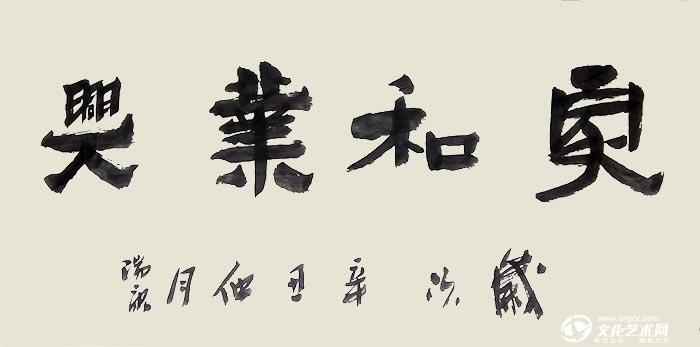 家和業興
歲次辛丑月
www.orgcc.com
文化艺术网